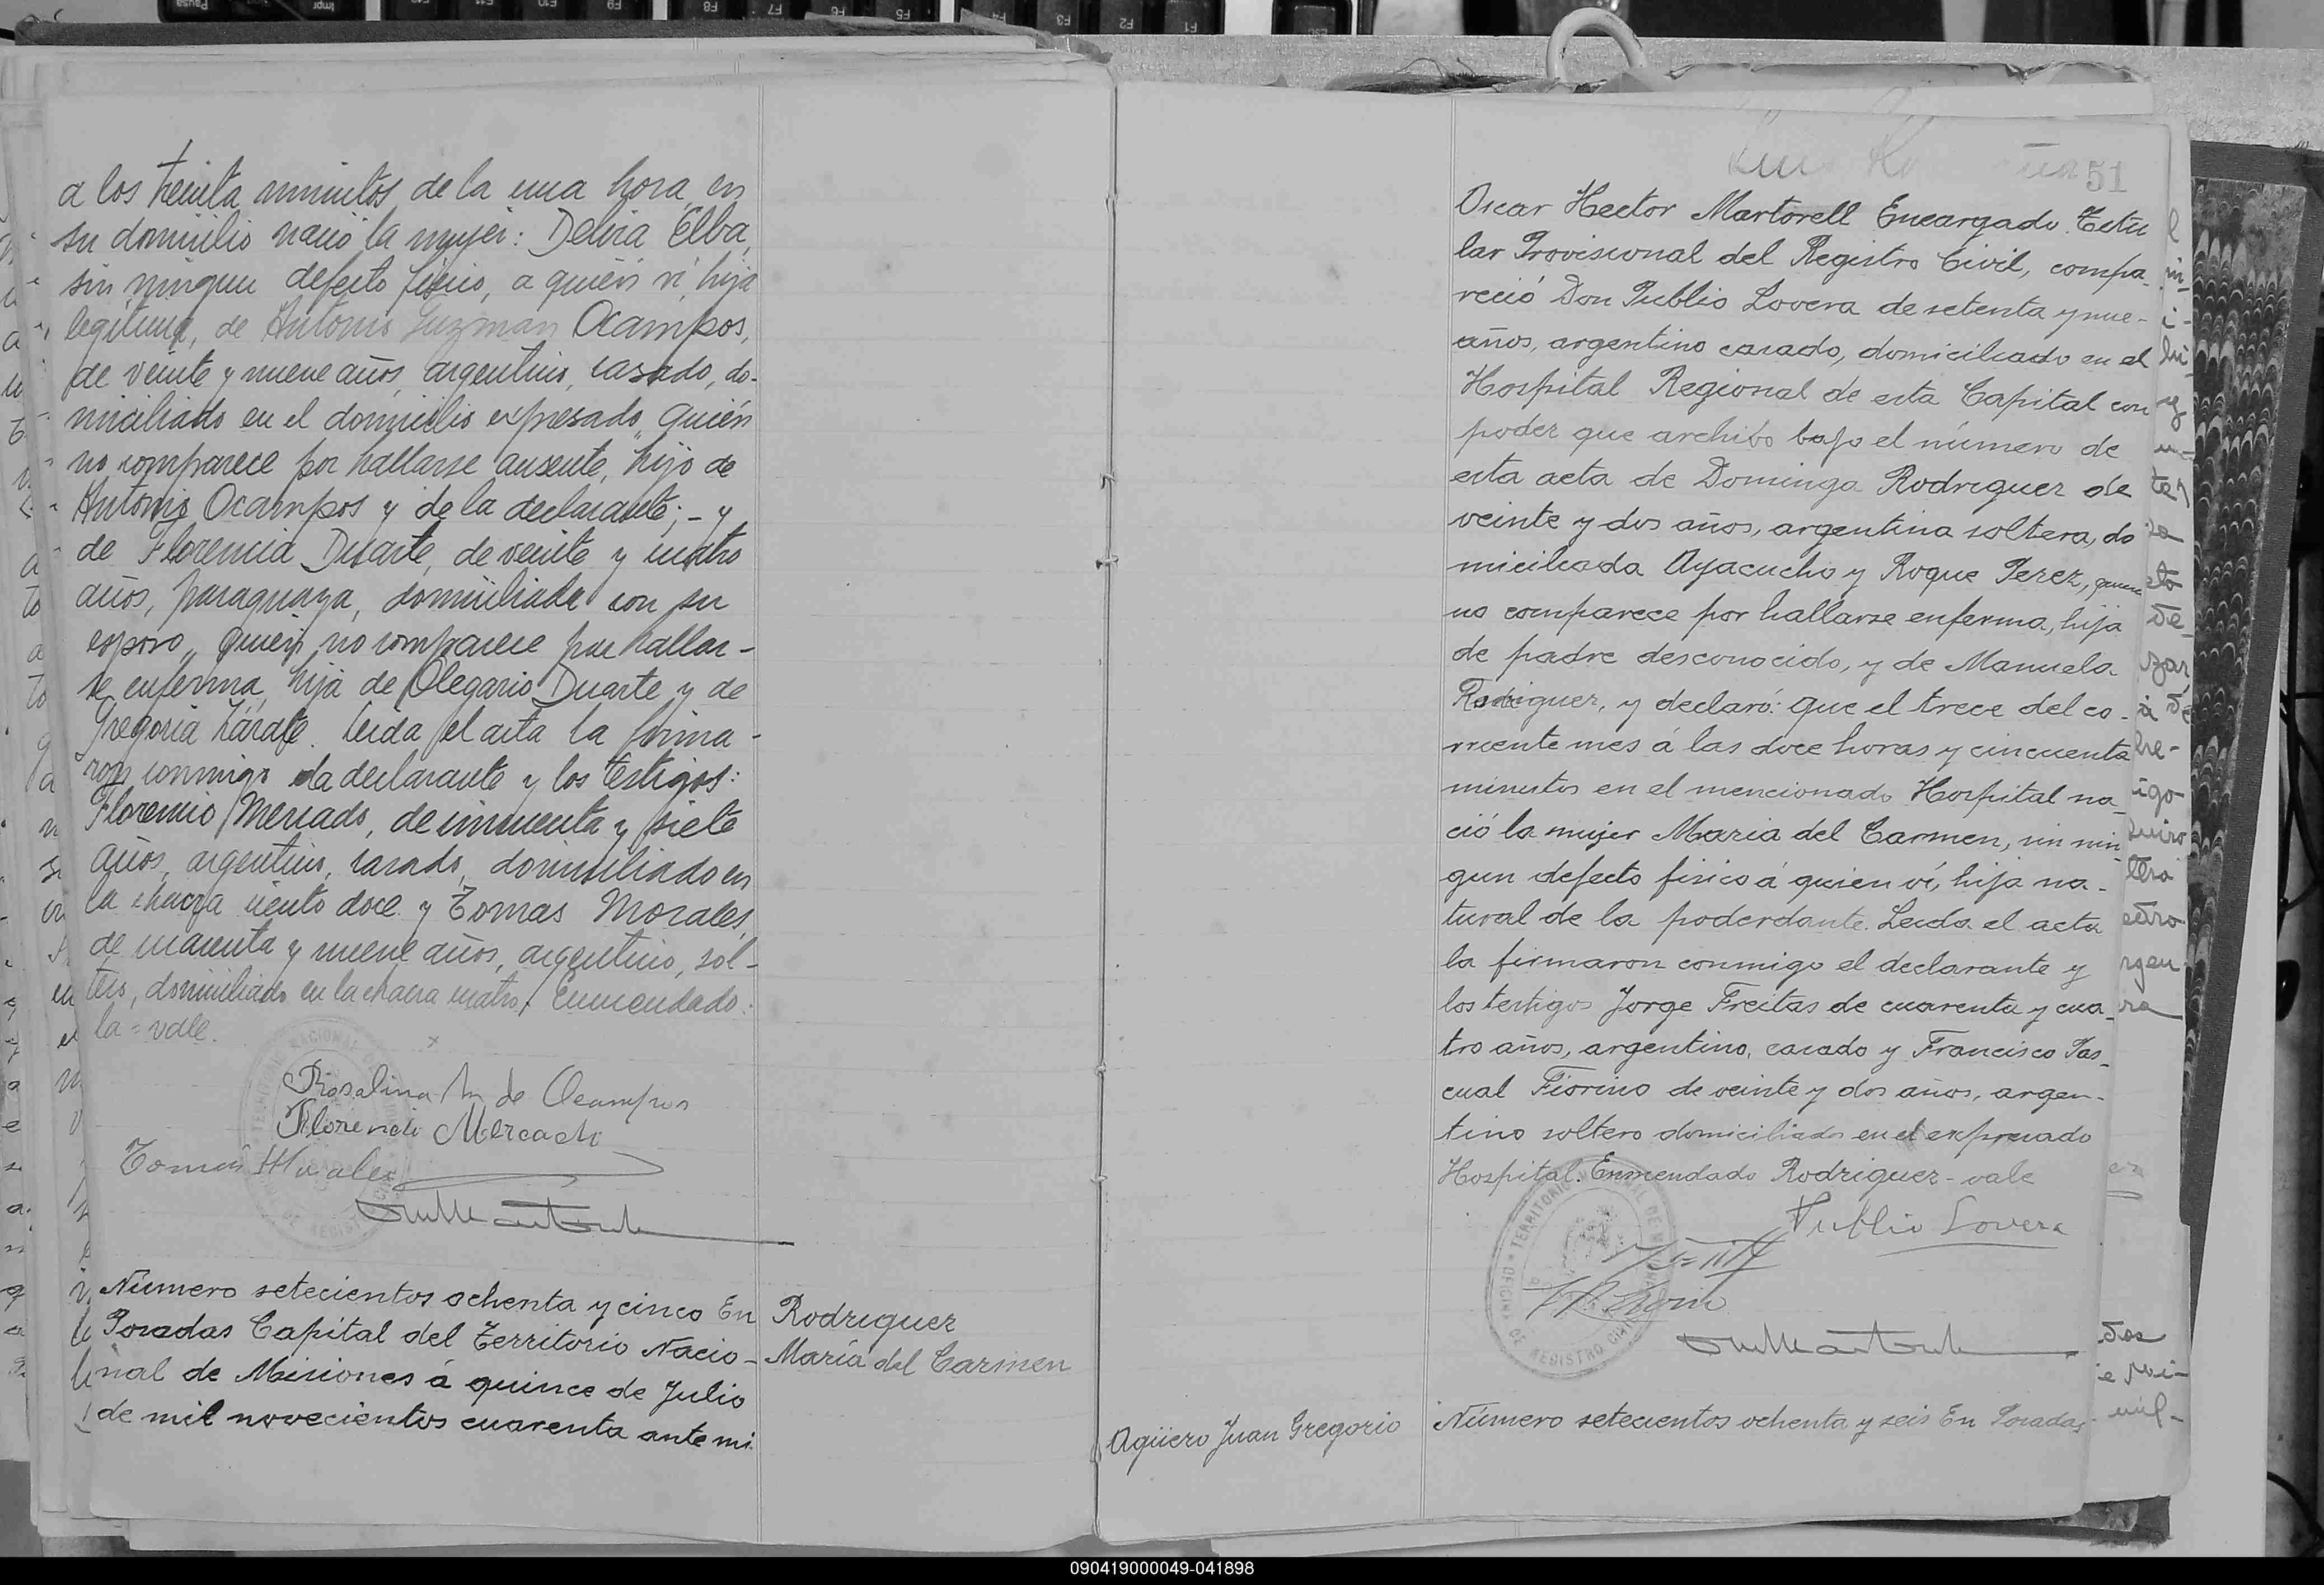 a los treinta minutos de la una hora, en
su domicilio nació la mujer: Delicia Elba,
sin ningun defecto fisico, a quién vi, hija
legitima, de Antonio Guzman Ocampos,
de veinte y nueve años, argentino, casado, do-
miciliado en el domicilio expresado, quién
no comparece por hallarse ausente, hijo de
Antonio Ocampos y de la declarante; - y
de Florencia Duarte, de veinte y cuatro
años, paraguaya, domiciliada con su
esposo, quien no comparece por hallar-
se enferma, hija de Olegario Duarte y de
Gregoria Zárate. Leida el acta la firma-
ron conmigo la declarante y los testigos:
Florencio Mercado, de cincuenta y siete
años, argentino, casado, domiciliado en
la chacra ciento doce y Tomas Morales,
de cuarenta y nueve años, argentino, sol-
tero, domiciliado en la chacra cuatro. Enmendado:
la = vale.
Rosalina M de Ocampos
Florencio Mercado
Tomas Morales
Número setecientos ochenta y cinco En
Posadas Capital del Territorio Nacio-
nal de Misiones á quince de Julio
de mil novecientos cuarenta ante mi
Rodriguez
María del Carmen
51
Oscar Hector Martorell Encargado Titu
lar Provisional del Registro Civil, compa-
reció Don Publio Lovera de setenta y nue-
años, argentino casado, domiciliado en el
Hospital Regional de esta Capital con
poder que archibo bajo el número de
esta acta de Dominga Rodriguez de
veinte y dos años, argentina soltera, do
miciliada Ayacucho y Roque Perez, quien
no comparece por hallarse enferma, hija
de padre desconocido, y de Manuela
Rodriguez, y declaró: que el trece del co-
rriente mes á las doce horas y cincuenta
minutos en el mencionado Hospital na-
ció la mujer Maria del Carmen, sin nin
gun defecto fisico á quien ví, hija na-
tural de la poderdante. Leida el acta
la firmaron conmigo el declarante y
los testigos Jorge Freitas de cuarenta y cua-
tro años, argentino, casado y Francisco Pas-
cual Fiorino de veinte y dos años, argen-
tino soltero domiciliados en el expresado
Hospital. Enmendado Rodriguez - vale
Publio Lovera
Agüero Juan Gregorio
Número setecientos ochenta y seis En Posadas
090419000049-041898